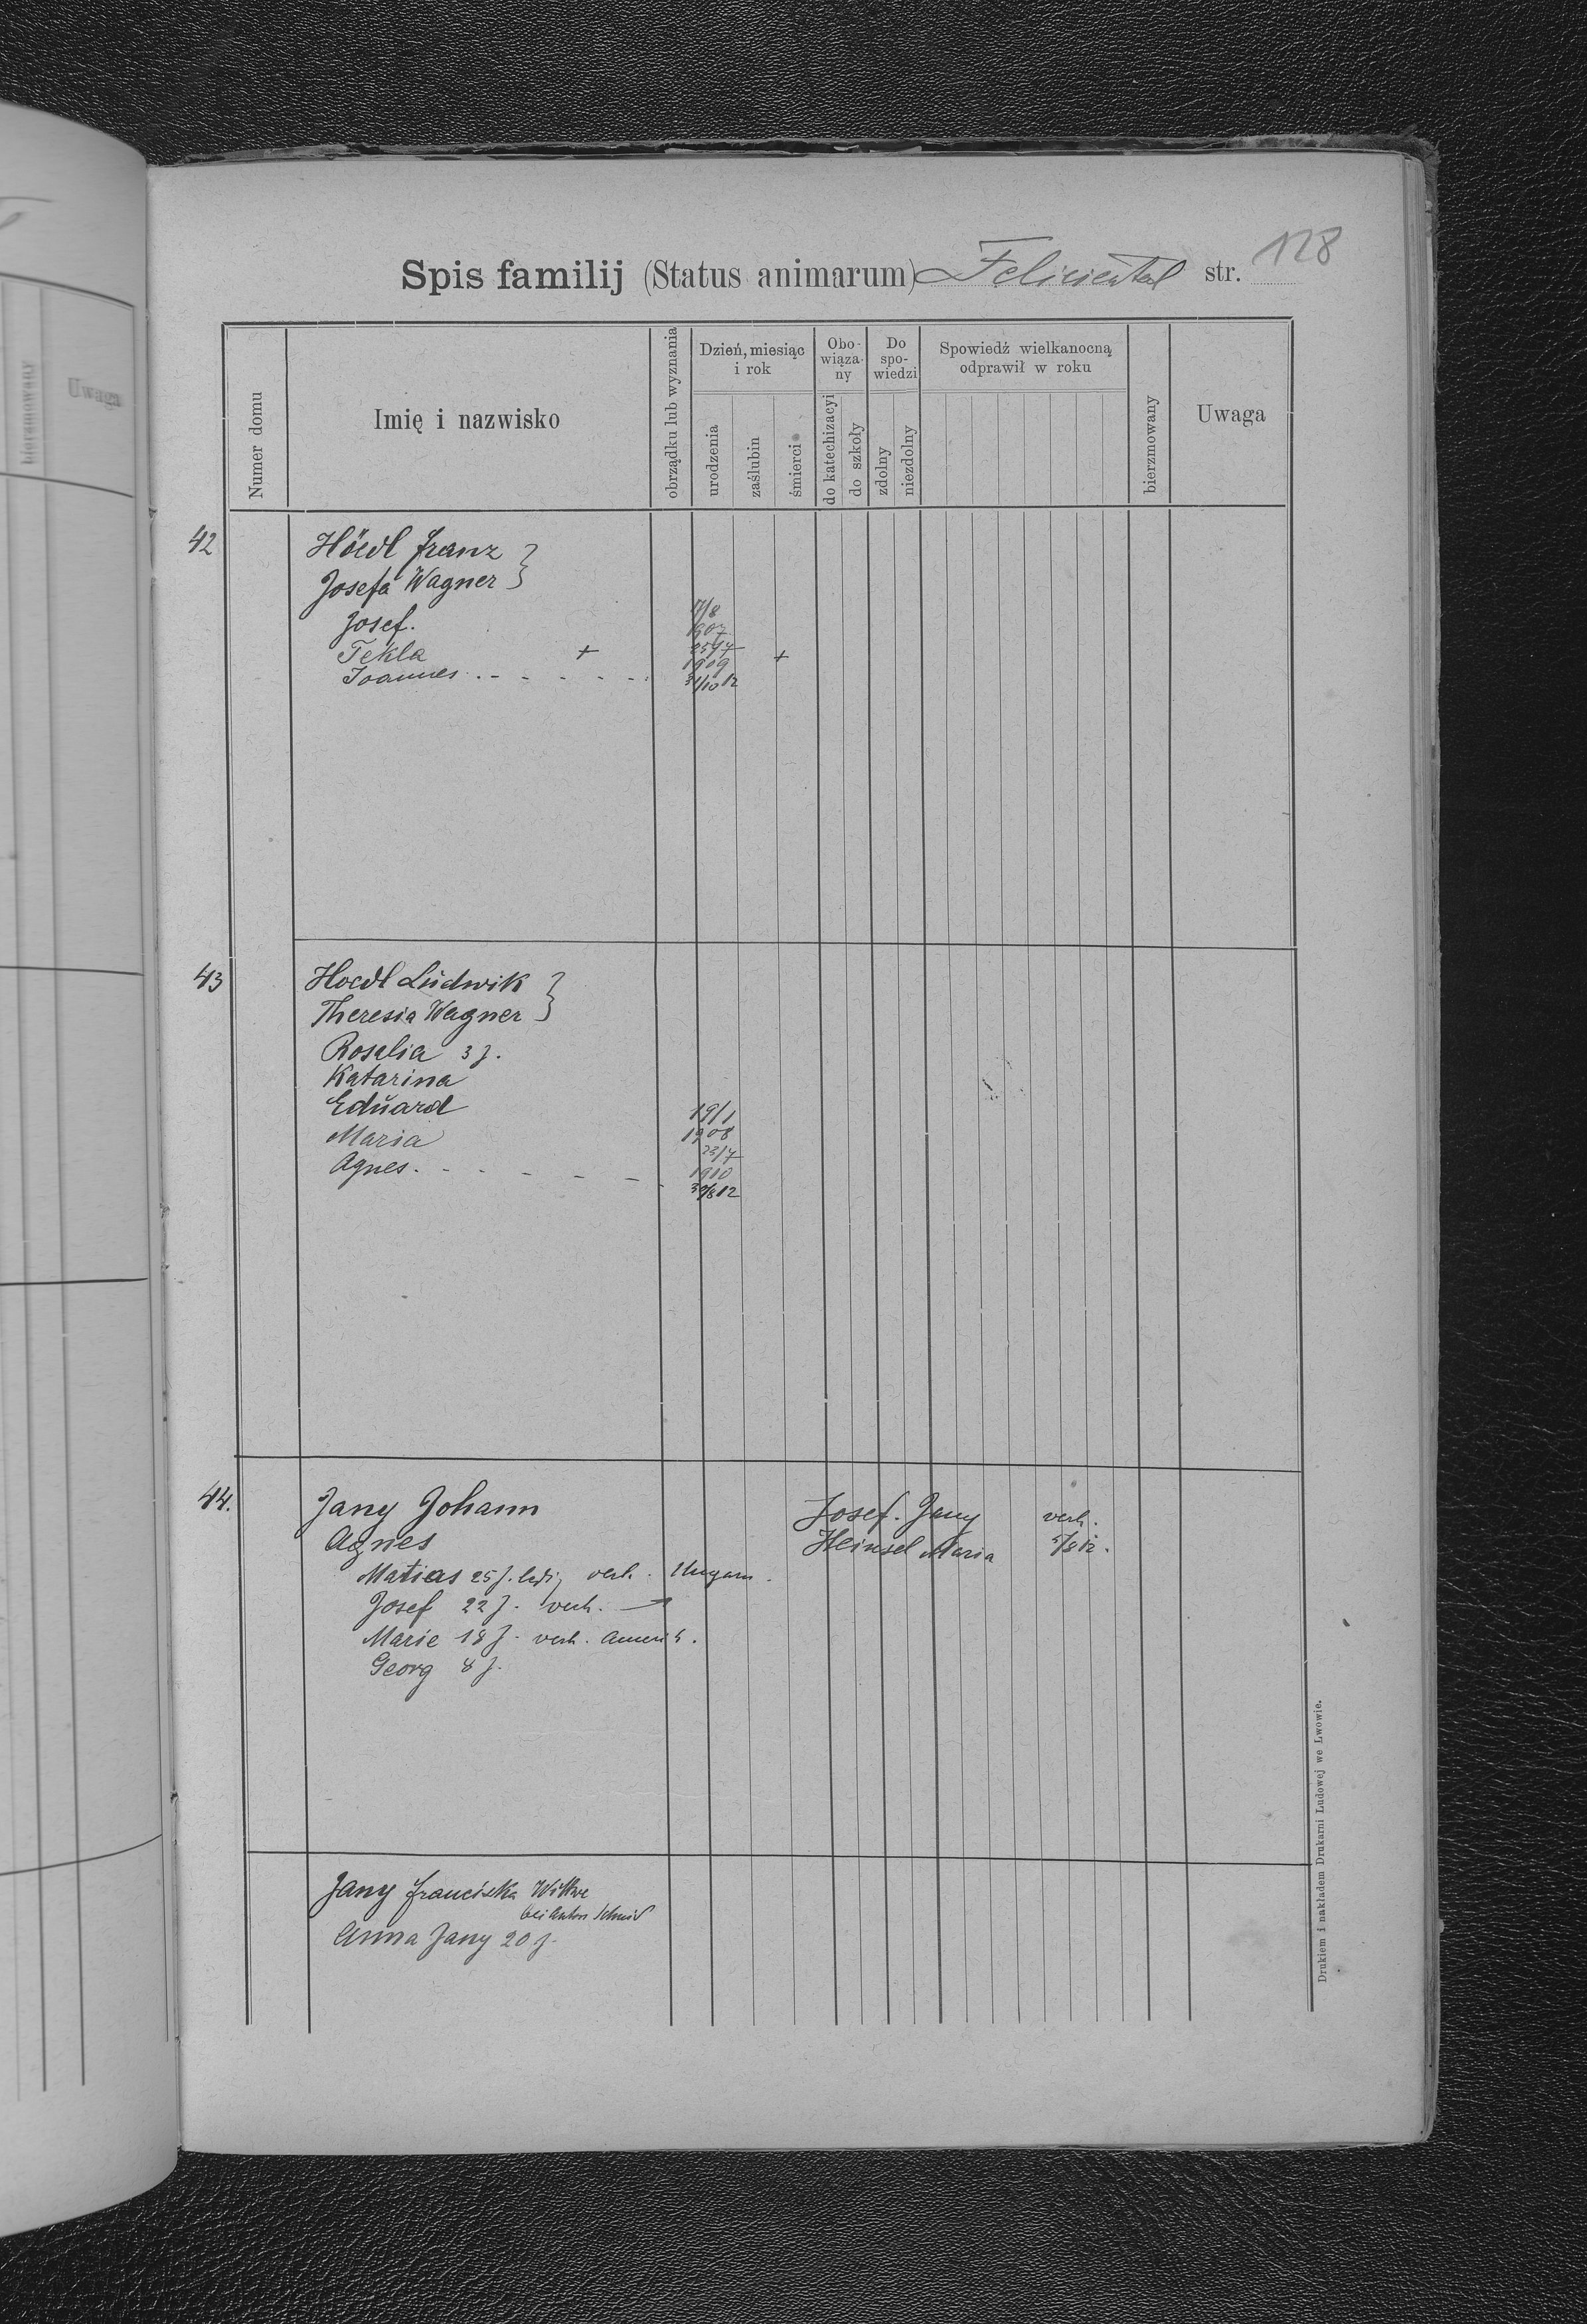 128
Spis familij (Status animarum) Felicienthal str.
Numer domu
Imię i nazwisko
obrządku lub wyznania
Dzień, miesiąc i rok
urodzenia
zaślubin
śmierci
Obo-
wiąza-
ny
do katechizacyi
do szkoły
Do
spo-
wiedzi
zdolny
niezdolny
Spowiedź wielkanocną
odprawił w roku
bierzmowany
Uwaga
bierzmowany
Uwaga
42
Höedl Franz }
Josefa Wagner
Josef. 17/8 1907
Tekla + 25/7 1909 +
Joannes . - - - - - . 31/10 12
43
Hoedl Ludwik }
Theresia Wagner
Rosalia 3 J.
Katarina
Eduard 19/1 1908
Maria 23/7 1910
Agnes. - - - - - - 30/8 12
44.
Jany Johann Josef. Jany verh.
Agnes Heinsel Maria 5/8 12.
Matias 25 J. ledig verh. Ungarn.
Josef 22 J. verh. →
Marie 18 J. verh. Amerik.
Georg 8 J.
Jany Franciska Witwe
bei Anton Schmid
Anna Jany 20 J.
Drukiem i nakładem Drukarni Ludowej we Lwowie.